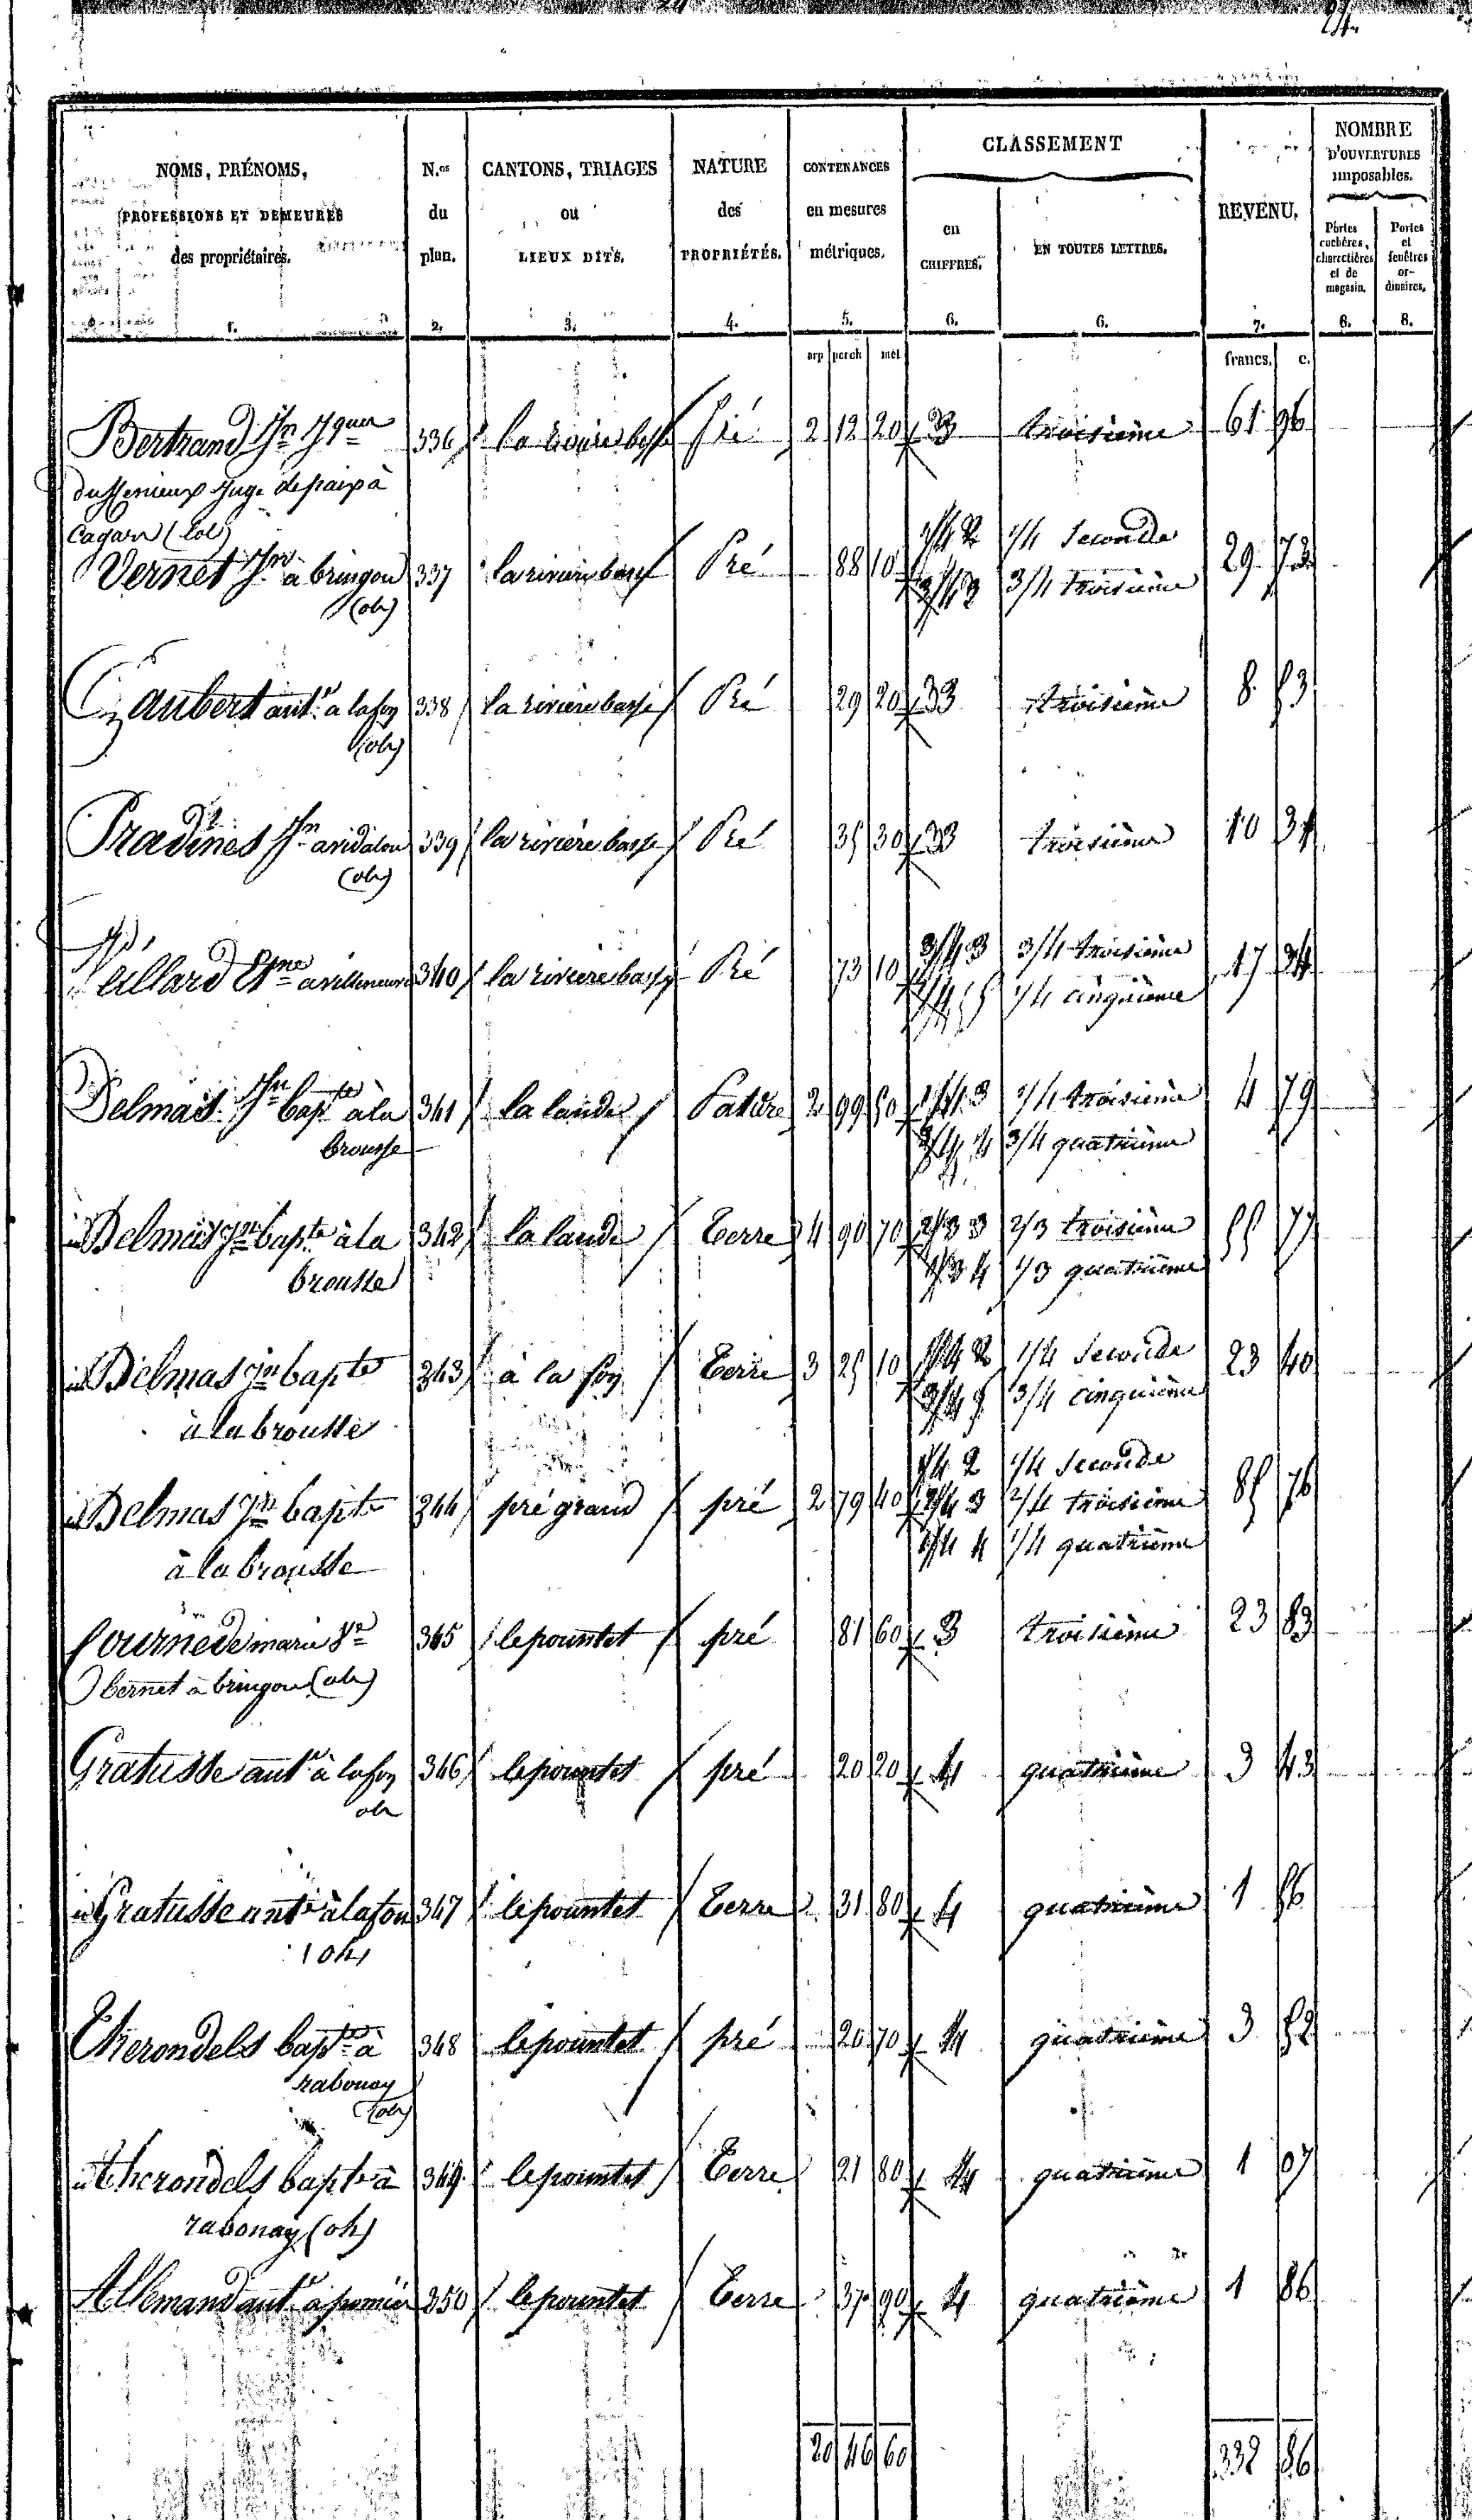 24.
NOMS, PRÉNOMS, PROFESSIONS ET DEMEURES des propriétaires. N.os du plan. CANTONS, TRIAGES ou LIEUX DITS. NATURE des PROPRIÉTÉS. CONTENANCES en mesures métriques. CLASSEMENT en CHIFFRES. EN TOUTES LETTRES. REVENU. NOMBRE D'OUVERTURES imposables. Portes cochères, charretières et de magasin. Portes et fenêtres ordinaires.
1. 2. 3. 4. 5. 6. 6. 7. 8. 8.
arp perch mèt francs. c.
Bertrand Jn 336 la rivière basse Pré 2 12 20 3 troisième 61 96
juge de paix à
(lot)
1/4 2 1/4 Seconde
Vernet Jn à bringou 337 la rivière basse Pré 88 10 29 73
(oh) 3/4 3 3/4 troisième
Gaubert ant.e à lafon 338 la rivière basse Pré 29 20 3 troisième 8 53
(oh)
Pradines Jn 339 la rivière basse Pré 35 30 3 troisième 10 31
(oh)
3/4 3 3/4 troisième
Veillard Etne 340 la rivière basse Pré 73 10 17 34
1/4 5 1/4 cinquième
Delmas Jn bapte à la 341 la lande Pature 2 99 50 1/4 3 1/4 troisième 4 79
brousse 3/4 4 3/4 quatrième
Delmas Jn bapte à la 342 la lande Terre 4 90 70 2/3 3 2/3 troisième 55 77
brousse 1/3 4 1/3 quatrième
1/4 2 1/4 Seconde
Delmas Jn bapte 343 à la fon Terre 3 25 10 23 40
à la brousse 3/4 5 3/4 cinquième
1/4 2 1/4 Seconde
Delmas Jn bapte 344 pré grand pré 2 79 40 2/4 3 2/4 troisième 85 76
à la brousse 1/4 4 1/4 quatrième
marie Ve 345 le pountet pré 81 60 3 troisième 23 83
bernet à bringou (oh)
Gratusse ant.e à lafon 346 le pountet pré 20 20 4 quatrième 3 43
oh
Gratusse ant.e à lafon 347 le pountet Terre 31 80 4 quatrième 1 56
(oh)
Therondels bapte à 348 le pountet pré 20 70 4 quatrième 3 52
rabonay
(oh)
Therondels bapte à 349 le pountet Terre 21 80 4 quatrième 1 07
rabonay (oh)
Allemand ant.e à 350 le pountet Terre 37 90 4 quatrième 1 86
20 46 60 332 86